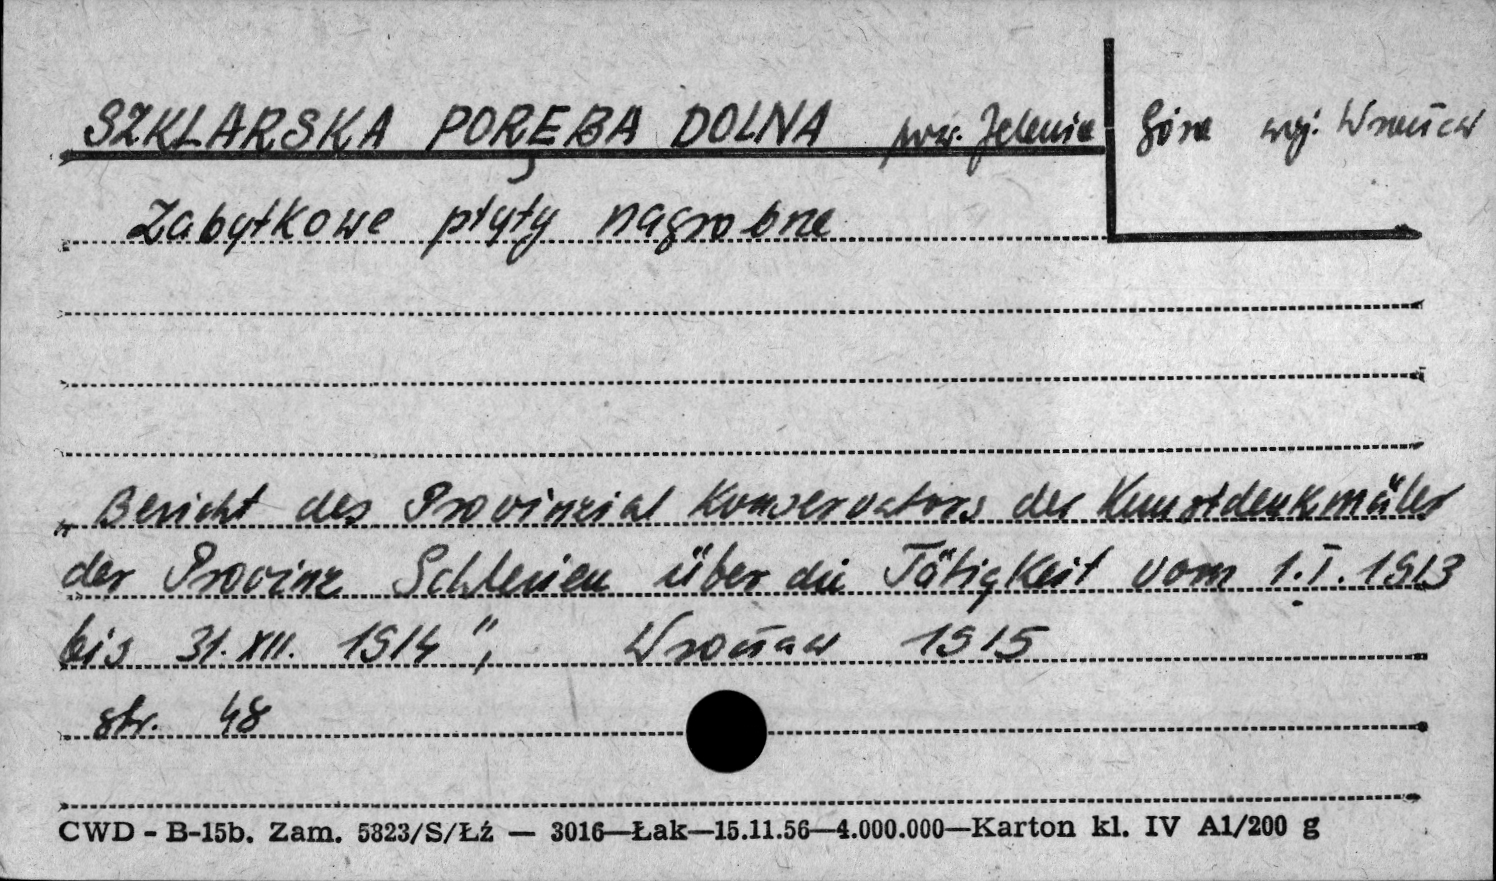 SZKLARSKA PORĘBA DOLNA pow. Jelenia Góra woj. Wrocław
Zabytkowe płyty nagrobne
„Bericht des Provinzial Konservators der Kunstdenkmäler
der Provinz Schlesien über die Tätigkeit vom 1.I.1913
bis 31.XII. 1914", Wrocław 1915
str. 48
CWD - B-15b. Zam. 5823/S/Łź — 3016—Łak—15.11.56—4.000.000—Karton kl. IV A1/200 g